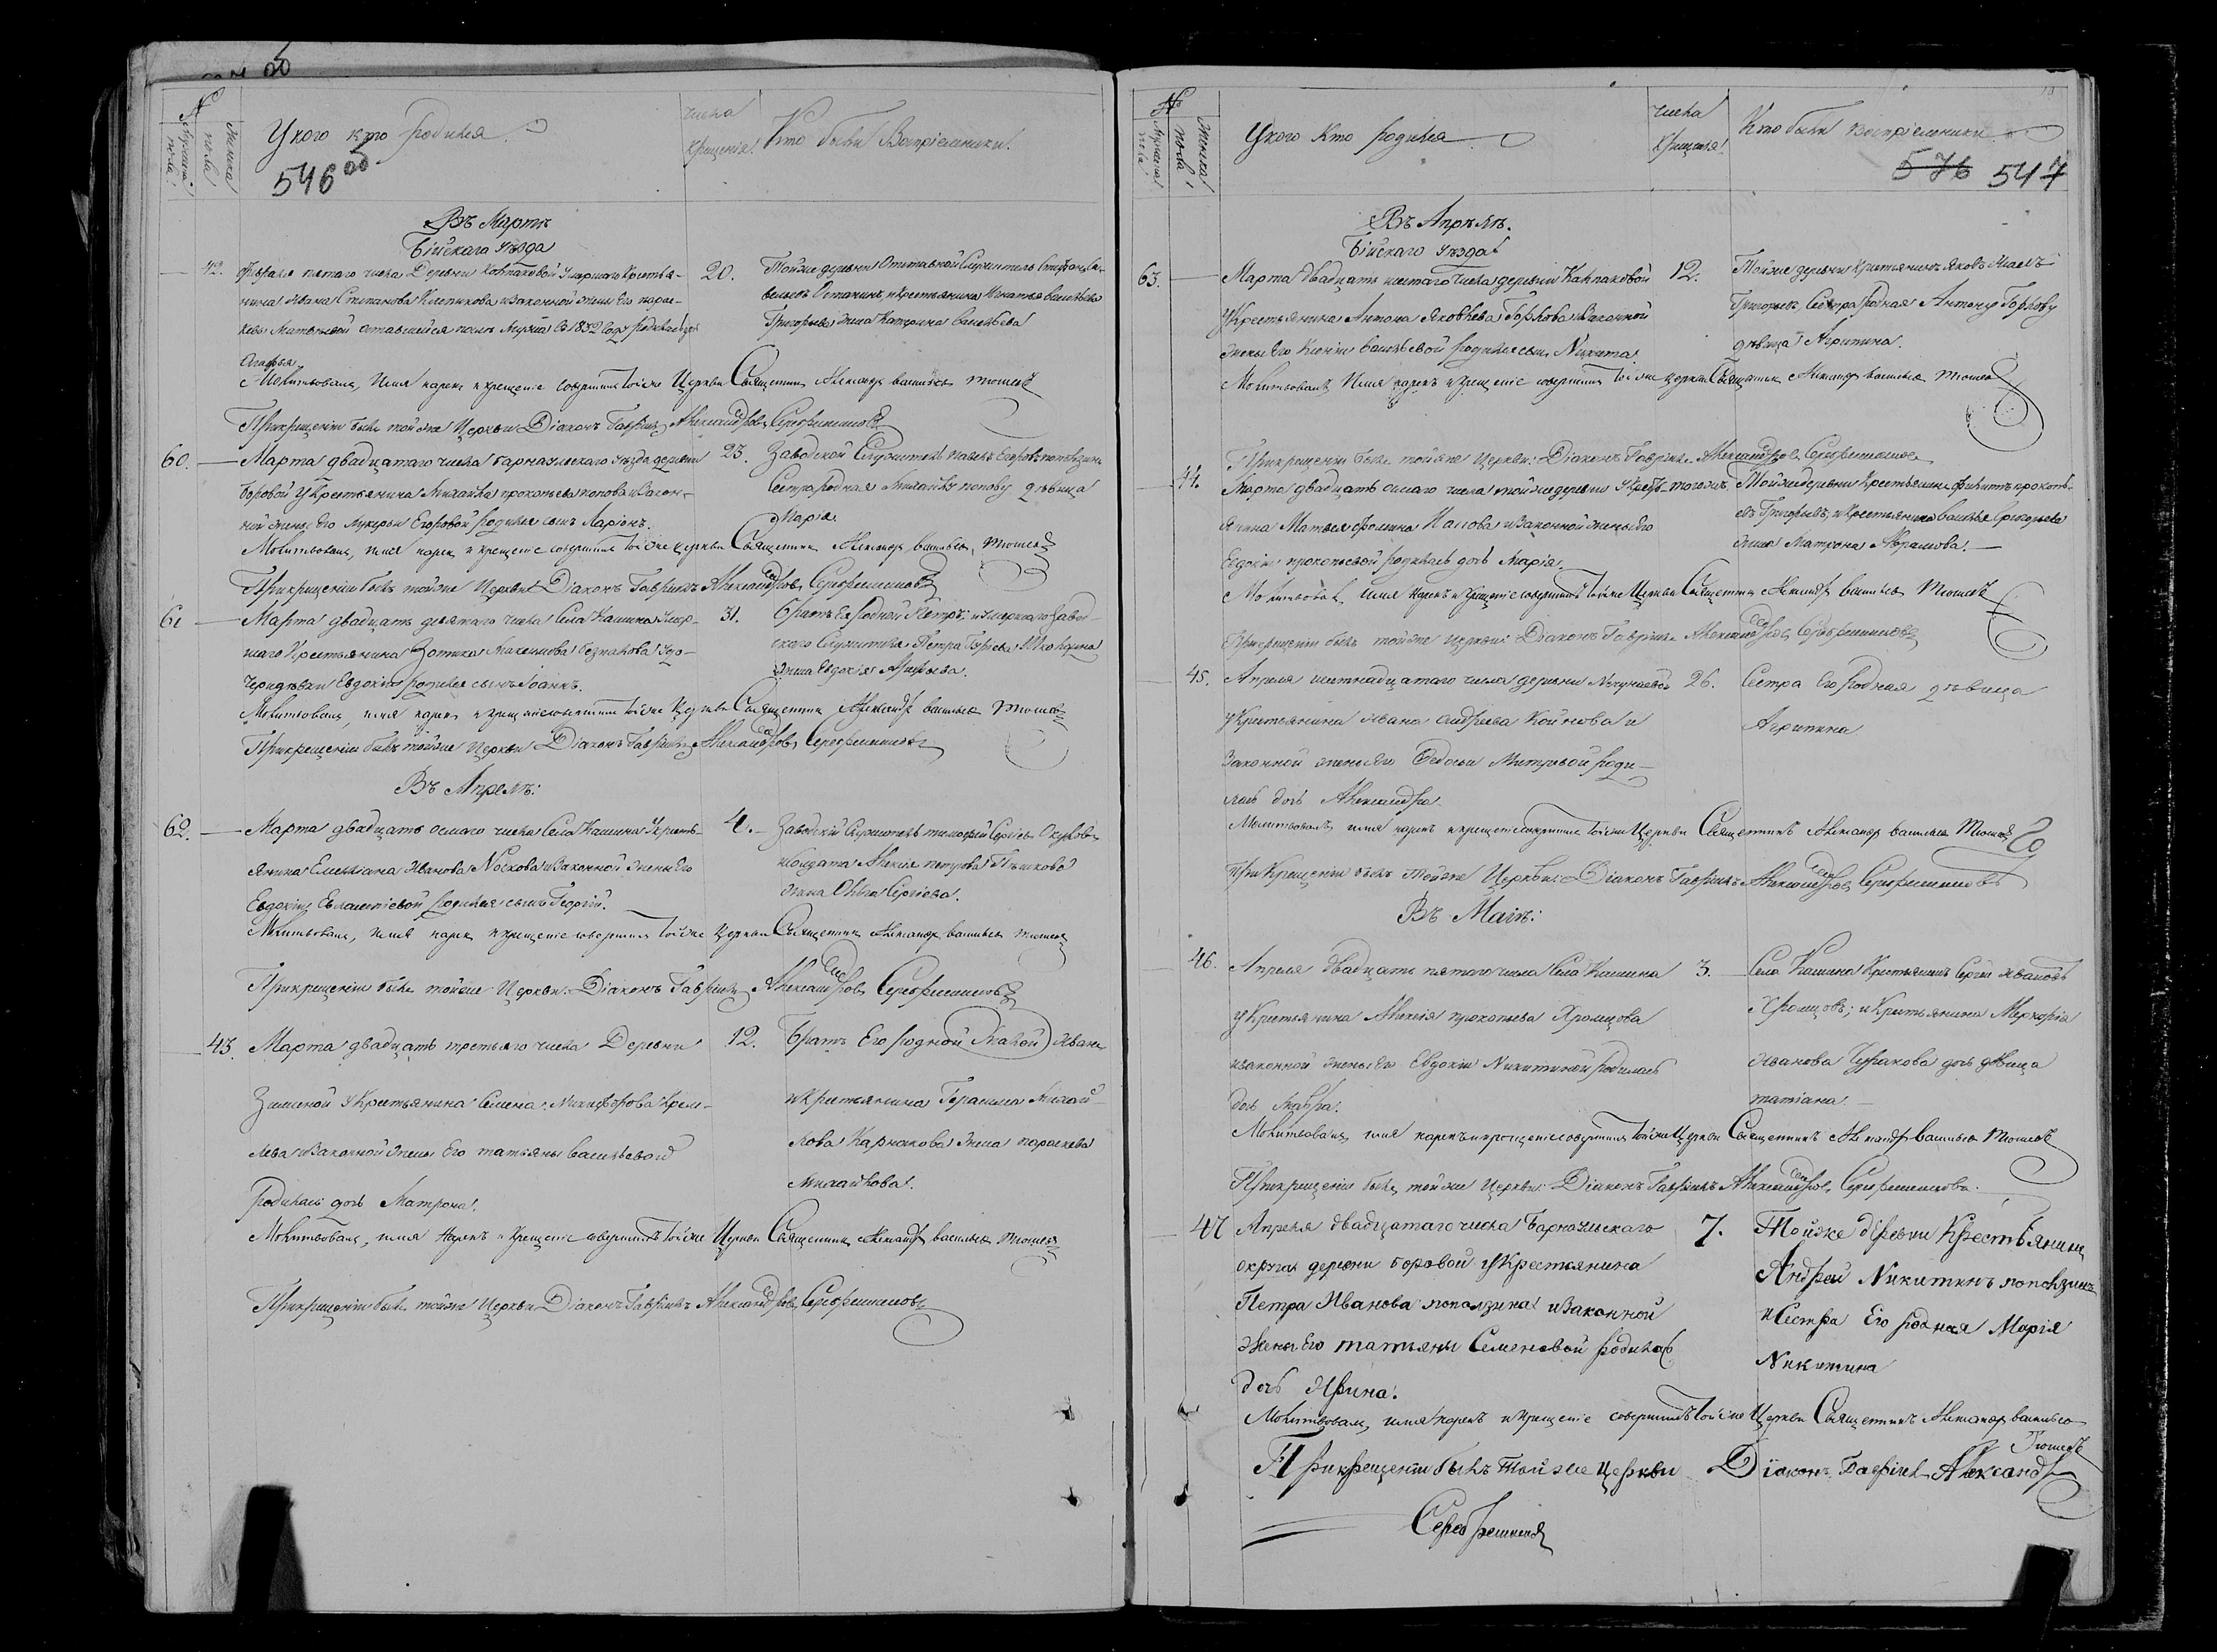 №
Мужеска пола
Женска пола
У кого кто родился
числа крещенія
Кто были Воспріемники.
546 об
Въ Мартѣ
Бійскаго уѣзда
42. Февраля пятаго числа Деревни Колпаковой умершаго крестья-
нина Ивана Степанова Клепикова и законной жены Его Парас-
кевы Матвѣевой оставшейся послѣ мужа въ 1832 году родилась дочь
Агафья.
20. Тойже деревни Отставной Служитель Стефанъ
Останинъ, и крестьянина Игнатья Васильева
Григорьева жена Катерина Савельева
Молитвовалъ, Имя нарекъ и крещеніе совершилъ тойже Церкви Священникъ Александръ Васильевъ
При крещеніи былъ тойже Церкви Діаконъ Гавріилъ Александровъ Серебренниковъ
60. Марта двадцатаго числа Барнаульскаго уѣзда деревни
Боровой у Крестьянина Михайла Прокопьева Попова и закон-
ной жены Его Лукерьи Егоровой родился сынъ Ларіонъ.
23. Заводской Служитель Павелъ Егоровъ Поползинъ
Сестра родная Михайлу Попову дѣвица
Марія
Молитвовалъ, имя нарекъ и крещеніе совершилъ тойже церкви Священникъ Александръ Васильевъ
При крещеніи былъ тойже Церкви Діаконъ Гавріилъ Александровъ Серебренниковъ
61 Марта двадцать девятаго числа Села Кашина умер-
шаго Крестьянина Зотика Максимова у до-
чери дѣвки Евдокіи родился сынъ Іоаннъ.
31. Братъ Ея родной Петръ; и умершаго Завод-
скаго Служителя Петра
жена Евдокія
Молитвовалъ, имя нарекъ и крещеніе совершилъ тойже Церкви Священникъ Александръ Васильевъ
При крещеніи былъ тойже Церкви Діаконъ Гавріилъ Александровъ Серебренниковъ
Въ Апрелѣ:
62. Марта двадцать осмаго числа Села Кашина у кресть-
янина Емельяна Иванова Носкова и законной жены Его
Евдокіи родился сынъ Георгій.
4. Заводскій Служитель Тимофей Сергѣевъ Окуловъ
и Солдата Алексія Петрова Пѣшкова
жена Ольга Сергіева.
Молитвовалъ, имя нарекъ и крещеніе совершилъ тойже Церкви Священникъ Александръ Васильевъ
При крещеніи былъ тойже Церкви: Діаконъ Гавріилъ Александровъ Серебренниковъ
43. Марта двадцать третьяго числа Деревни
Зиминой у Крестьянина Семена Никифорова
и законной жены Его Татьяны Васильевой
родилась дочь Матрона.
12. Братъ Его родной Иванъ
и Крестьянина Герасима Михай-
лова Карнакова жена Параскева
Михайлова.
Молитвовалъ, имя нарекъ и Крещеніе совершилъ тойже Церкви Священникъ Александръ Васильевъ
При крещеніи былъ тойже Церкви Діаконъ Гавріилъ Александровъ Серебренниковъ
№
Мужеска пола
Женска пола
У кого Кто родился
числа крещенія
Кто были воспріемники
576 547
Въ Апрѣлѣ.
Бійскаго уѣзда
63. Марта двадцать шестаго числа деревни Калпаковой
у Крестьянина Антона Яковлева Горлова и законной
жены Его Ксеніи Васильевой родился сынъ Никита.
12. Тойже деревни Крестьянинъ Яковъ
Григорьевъ, Сестра родная Антону Горлову
дѣвица Агрипина.
Молитвовалъ, Имя нарекъ и крещеніе совершилъ тойже церкви Священникъ Александръ Васильевъ
При крещеніи былъ тойже Церкви: Діаконъ Гавріилъ Александровъ Серебренниковъ
44. Марта двадцать осмаго числа тойже деревни у Крест-
янина Матвея Фомина и законной жены Его
Евдокіи Прокопьевой родилась дочь Марія.
Тойже деревни Крестьянинъ Филиппъ Прокопь-
евъ Григорьевъ, и Крестьянина Василья
жена Матрона Абрамова.
Молитвовалъ, имя нарекъ и крещеніе совершилъ тойже Церкви Священникъ Александръ Васильевъ
При крещеніи былъ тойже Церкви: Діаконъ Гавріилъ Александровъ Серебренниковъ
45. Апреля шестнадцатаго числа деревни
у Крестьянина Ивана Андреева Койнова и
Законной жены Его Федосьи Митровой роди-
лась дочь Александра.
26. Сестра Его родная дѣвица
Агрипина
Молитвовалъ, имя нарекъ и крещеніе совершилъ тойже Церкви Священникъ Александръ Васильевъ
При Крещеніи былъ Тойже Церкви: Діаконъ Гавріилъ Александровъ Серебренниковъ
Въ Маіѣ:
46. Апреля двадцать пятаго числа Села Кашина
у Крестьянина Алексія Прокопьева Хромцова
и законной жены Его Евдокіи Никитиной родилась
дочь Мавра.
3. Села Кашина Крестьянинъ Сергій Ивановъ
Хромцовъ; и Крестьянина Меркурія
Иванова дочь дѣвица
Татіана.
Молитвовалъ, имя нарекъ и крещеніе совершилъ тойже Церкви Священникъ Александръ Васильевъ
При крещеніи былъ тойже Церкви: Діаконъ Гавріилъ Александровъ Серебренниковъ
47 Апреля двадцатаго числа Барнаульскаго
округа деревни Боровой у Крестьянина
Петра Иванова Поползина и Законной
Жены Его Татьяны Семеновой родилась
дочь Ирина.
7. Тойже деревни Крестьянинъ
Андрей Никитинъ Поползинъ
и Сестра Его родная Марія
Никитина
Молитвовалъ, имя нарекъ и крещеніе совершилъ тойже Церкви Священникъ Александръ Васильевъ
При крещеніи былъ Тойже Церкви Діаконъ Гавріилъ Александр
Серебренников